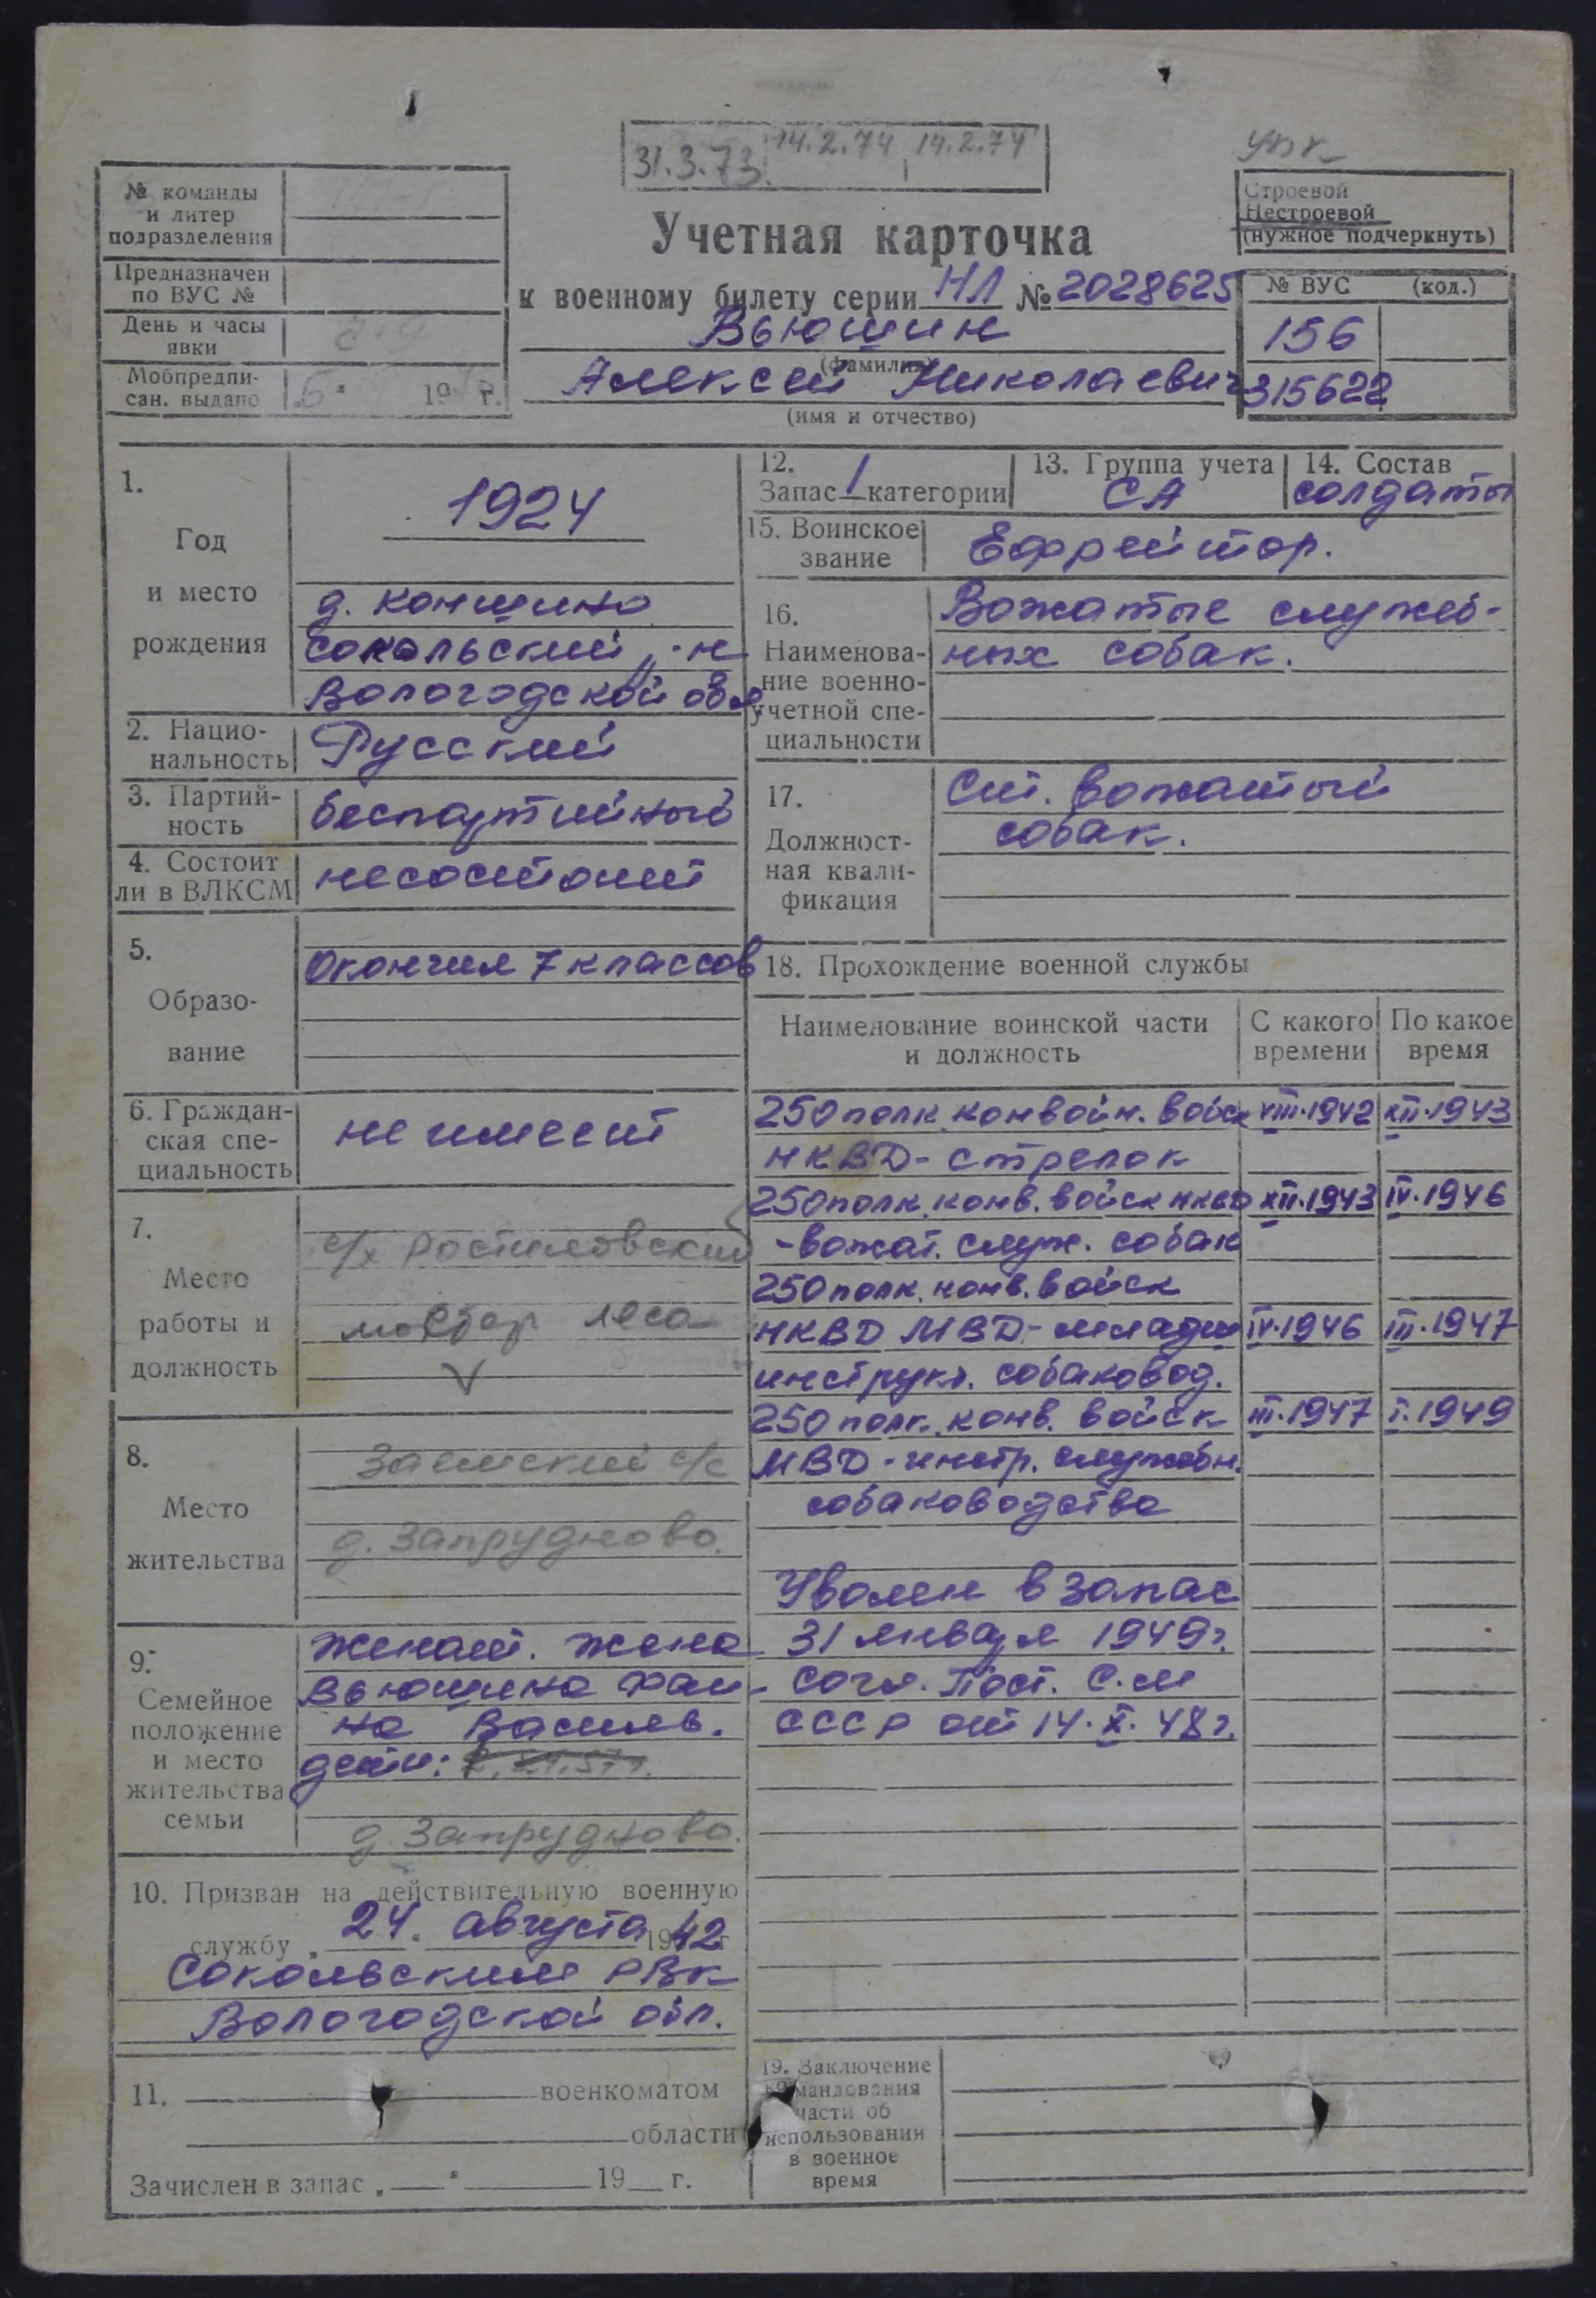 31.3.73. 14.2.74 14.2.74
№ команды
и литер
подразделения
Предназначен
по ВУС №
День и часы
явки
Мобпредпи-
сан. выдано " 6 " 19 г.
Строевой
Нестроевой
(нужное подчеркнуть)
Учетная карточка
к военному билету серии НЛ № 2028625
Вьюшин
(фамилия)
Алексей Николаевич
(имя и отчество)
№ ВУС (код.)
156
315622
1.
Год
и место
рождения
1924
д. Коншино
Сокольский р-н
Вологодской обл
2. Нацио-
нальность
Русский
3. Партий-
ность
беспартийный
4. Состоит
ли в ВЛКСМ
несостоит
5.
Образо-
вание
Окончил 7 классов
6. Граждан-
ская спе-
циальность
не имеет
7.
Место
работы и
должность
с/х Ростиловский
мастер леса
8.
Место
жительства
Заемский с/с
д. Запрудново.
9.
Семейное
положение
и место
жительства
семьи
Женат. Жена
Вьюшина Фаи-
на Васильев.
дети:
д. Запрудново.
10. Призван на действительную военную
службу " 24 " августа 1942 г
Сокольским РВК
Вологодской обл.
11. военкоматом
области
Зачислен в запас " " 19 г.
12.
Запас 1 категории
13. Группа учета
СА
14. Состав
солдаты
15. Воинское
звание
Ефрейтор.
16.
Наименова-
ние военно-
учетной спе-
циальности
Вожатые служеб-
ных собак.
17.
Должност-
ная квали-
фикация
Ст. вожатый
собак.
18. Прохождение военной службы
Наименование воинской части
и должность
С какого
времени
По какое
время
250 полк. конвойн. войск VIII.1942 XII.1943
НКВД - стрелок
250 полк. конв. войск НКВД XII.1943 IV.1946
- вожат. служ. собак
250 полк. конв. войск
НКВД МВД - младш IV.1946 III.1947
инструкт. собаковод.
250 полк. конв. войск III.1947 I.1949
МВД - инстр. служебн.
собаководства
Уволен в запас
31 января 1949 г.
согл. Пост. С.М
СССР от 14.X.48 г.
19. Заключение
командования
части об
использовании
в военное
время